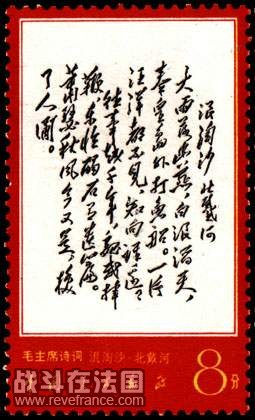 浪淘沙 北戴河
大雨落幽燕,白浪滔天,
秦皇岛外打鱼船。一片
汪洋都不见,知向谁边?
往事越千年,魏武挥
鞭,东临碣石有遗篇。
萧瑟秋风今又是,换
了人间。
毛主席诗词 浪淘沙·北戴河
8分
战斗在法国
www.revefrance.com